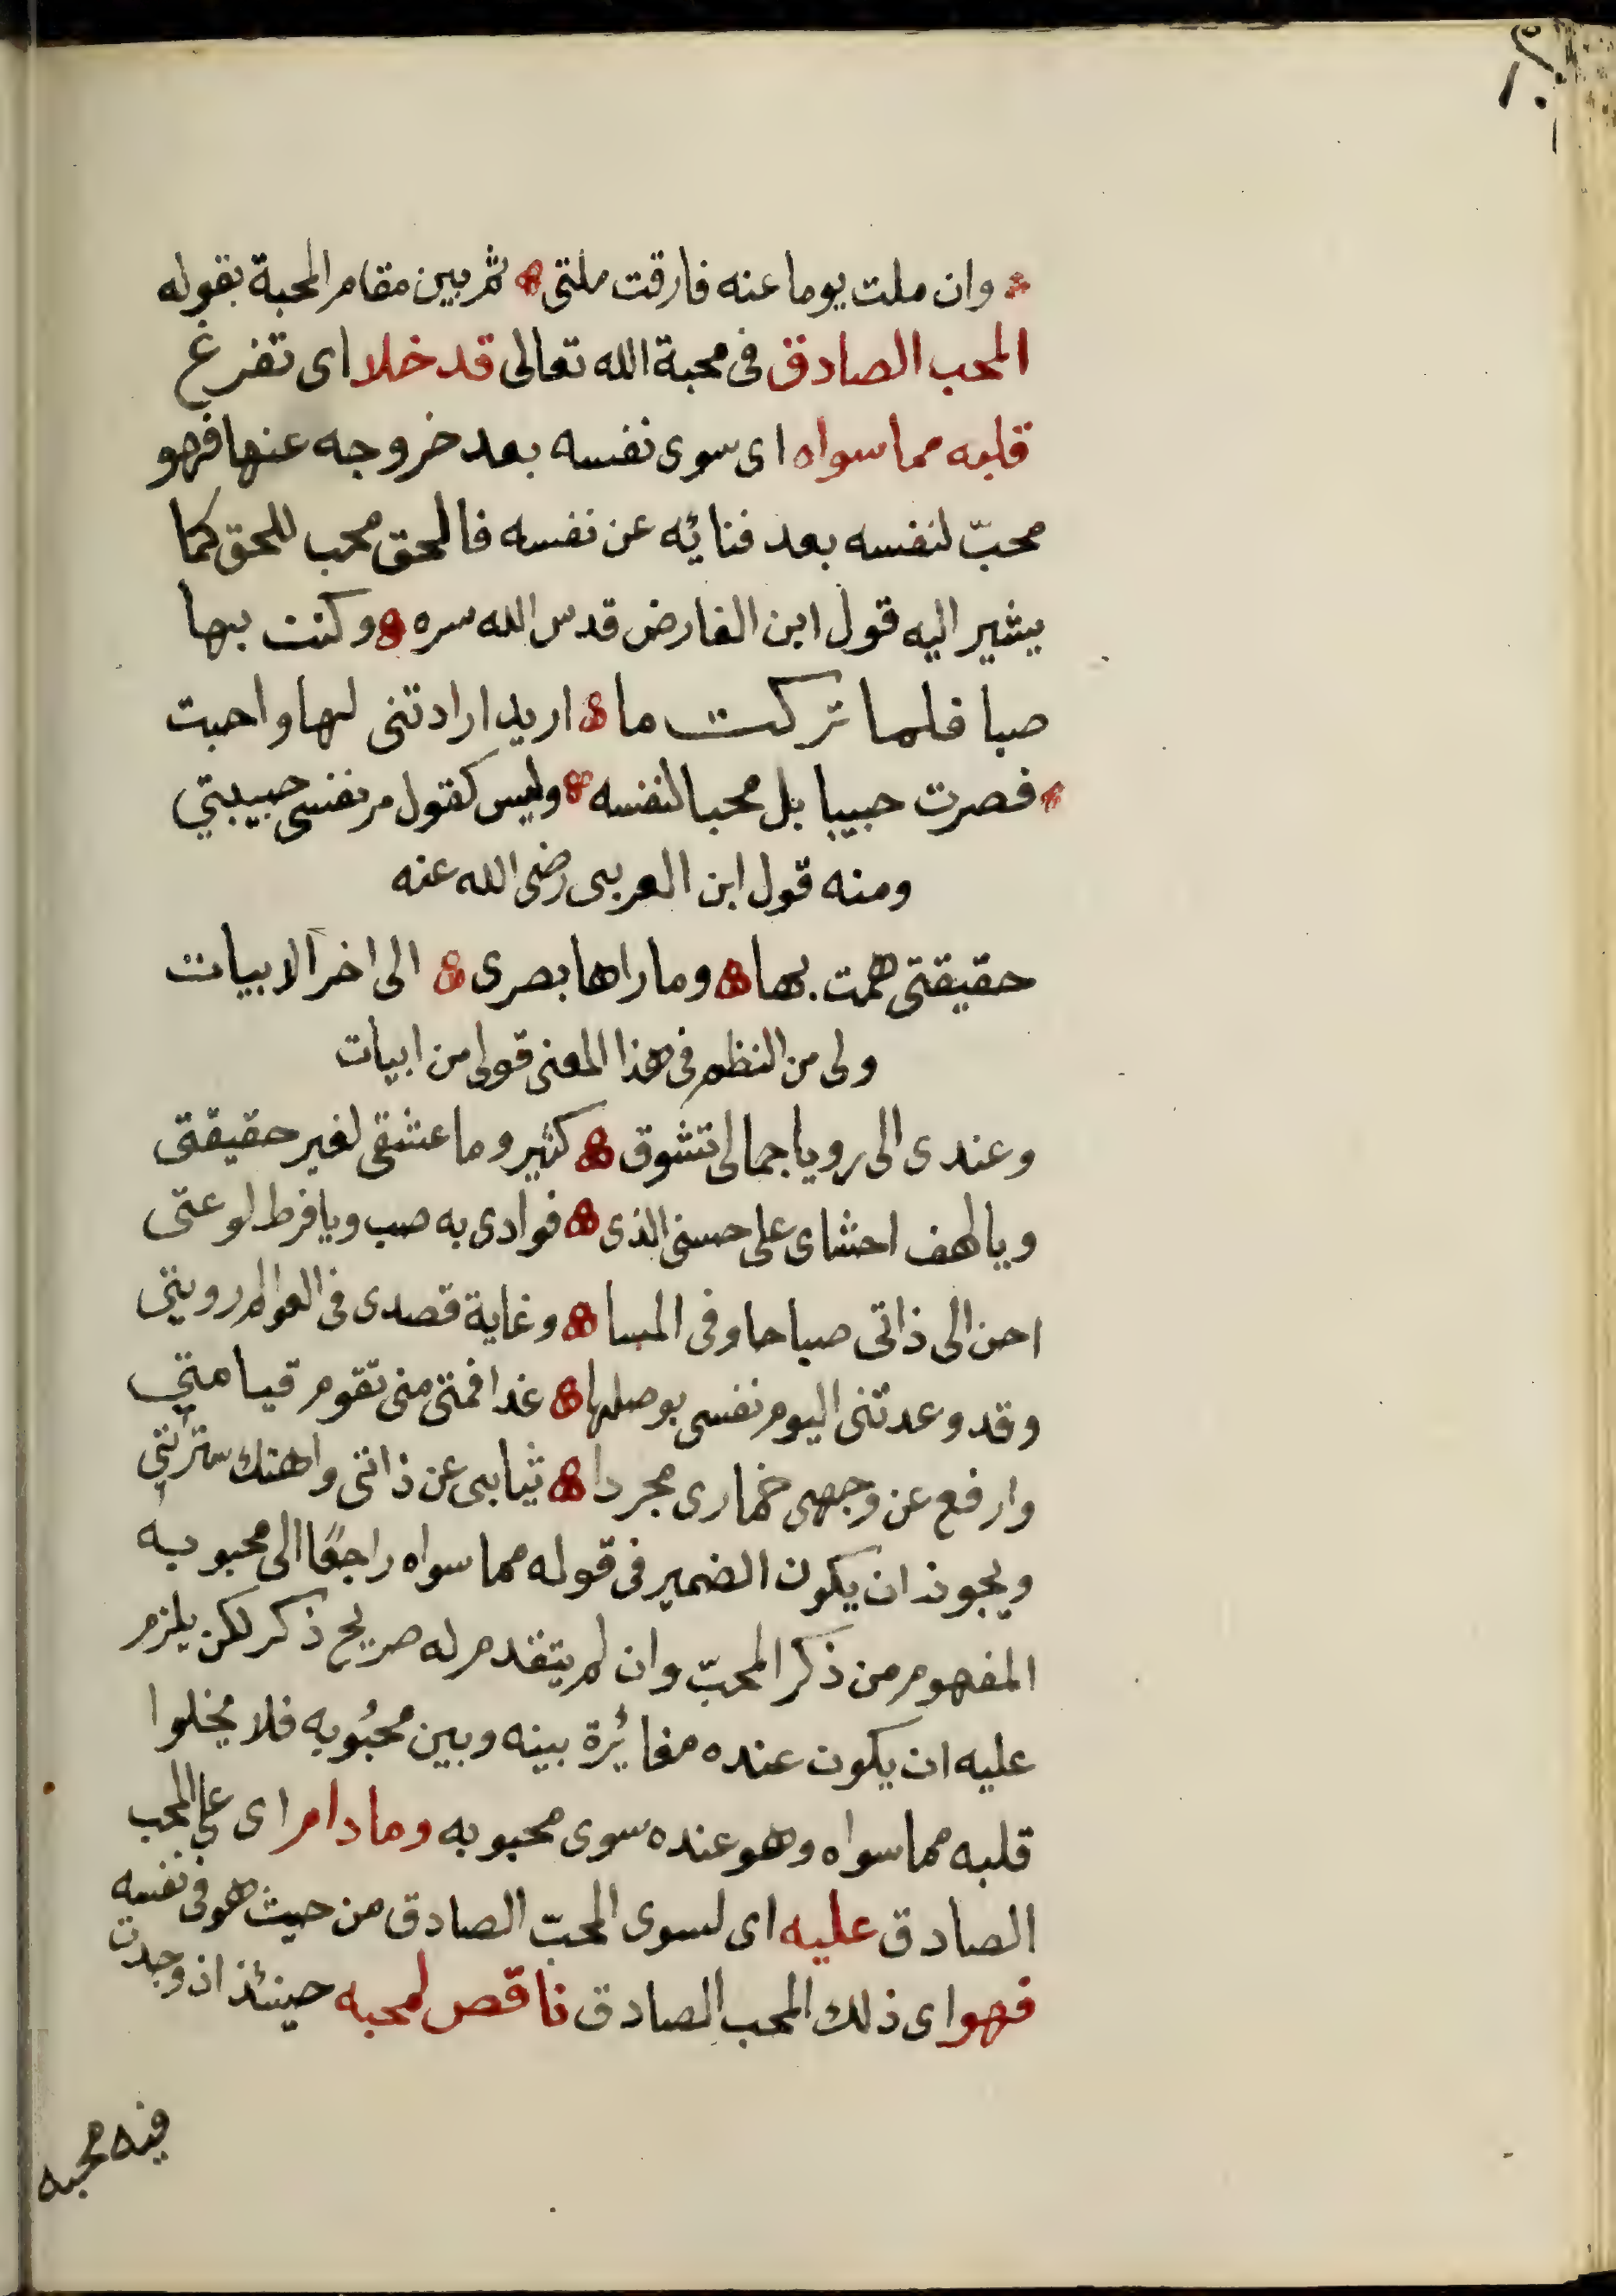 وان ملت يوما عنه فارقت ملتى ثم بين مقام المحبة بقوله
المحب الصادق فى محبة الله تعالى قد خلا اى تفرغ
قلبه مما سواه اى سوى نفسه بعد خروجه عنها فهو
محبّ لنفسه بعد فنائه عن نفسه فالحق محب للحق كما
يشير اليه قول ابن الفارض قدس الله سره وكنت بها
صبا فلما تركت ما اريد ارادتنى لها واحبت
فصرت حبيبا بل محبا لنفسه وليس كقول مر نفسى حبيبتي
ومنه قول ابن العربى رضى الله عنه
حقيقتى همت بها وما راها بصرى الى اخر الابيات
ولى من النظم فى هذا المعنى قولى من ابيات
وعندى الى رويا جمالى تشوق كثير وما عشقى لغير حقيقتى
ويا لهف احشاى على حسنى الذى فوادى به صب ويا فرط لوعتى
احن الى ذاتى صباحا وفى المسا وغاية قصدى فى العوالم رويتى
وقد وعدتنى اليوم نفسى بوصلها غدا فمتى منى تقوم قيامتي
وارفع عن وجهى خمارى مجردا ثيابى عن ذاتى واهتك سترتي
ويجوز ان يكون الضمير فى قوله مما سواه راجعًا الى محبوبه
المفهوم من ذكر المحبّ وان لم يتقدم له صريح ذكر لكن يلزم
عليه ان يكون عنده مغائرة بينه وبين محبُوبه فلا يخلوا
قلبه مما سواه وهو عنده سوى محبوبه وما دام اى على المحب
الصادق عليه اى لسوى المحبّ الصادق من حيث هو فى نفسه
فهو اى ذلك المحب الصادق ناقص لمحبه حينئذ اذ وجدت
فيه محبه